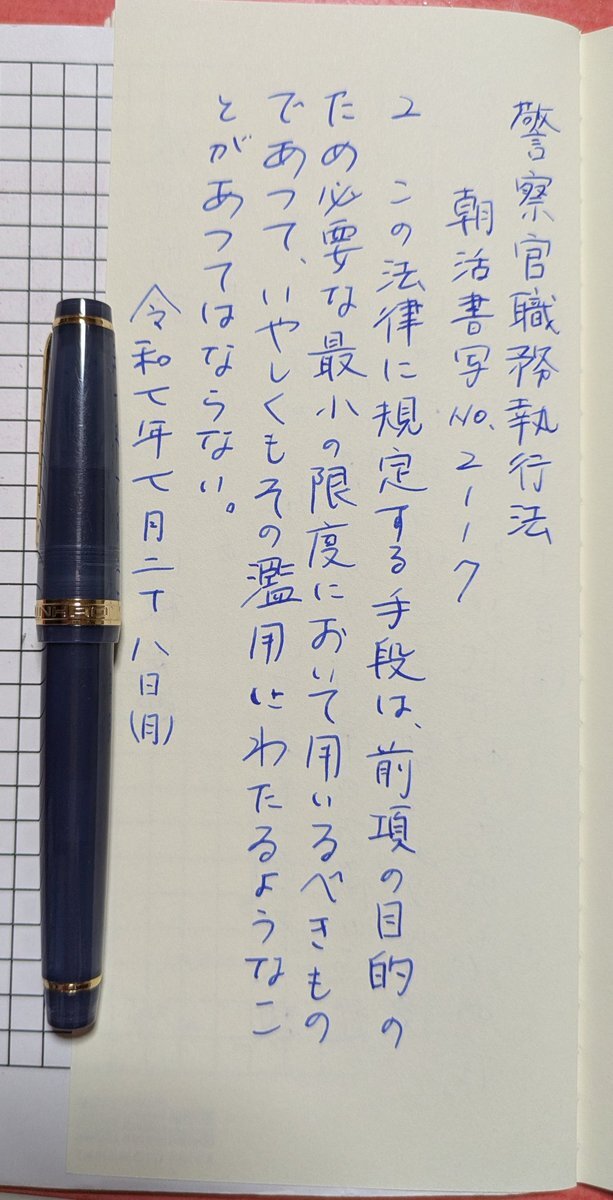 警察官職務執行法
朝活書写No.2117
2 この法律に規定する手段は、前項の目的の
ため必要な最小の限度において用いるべきもの
であつて、いやしくもその濫用にわたるようなこ
とがあつてはならない。
令和七年七月二十八日(月)